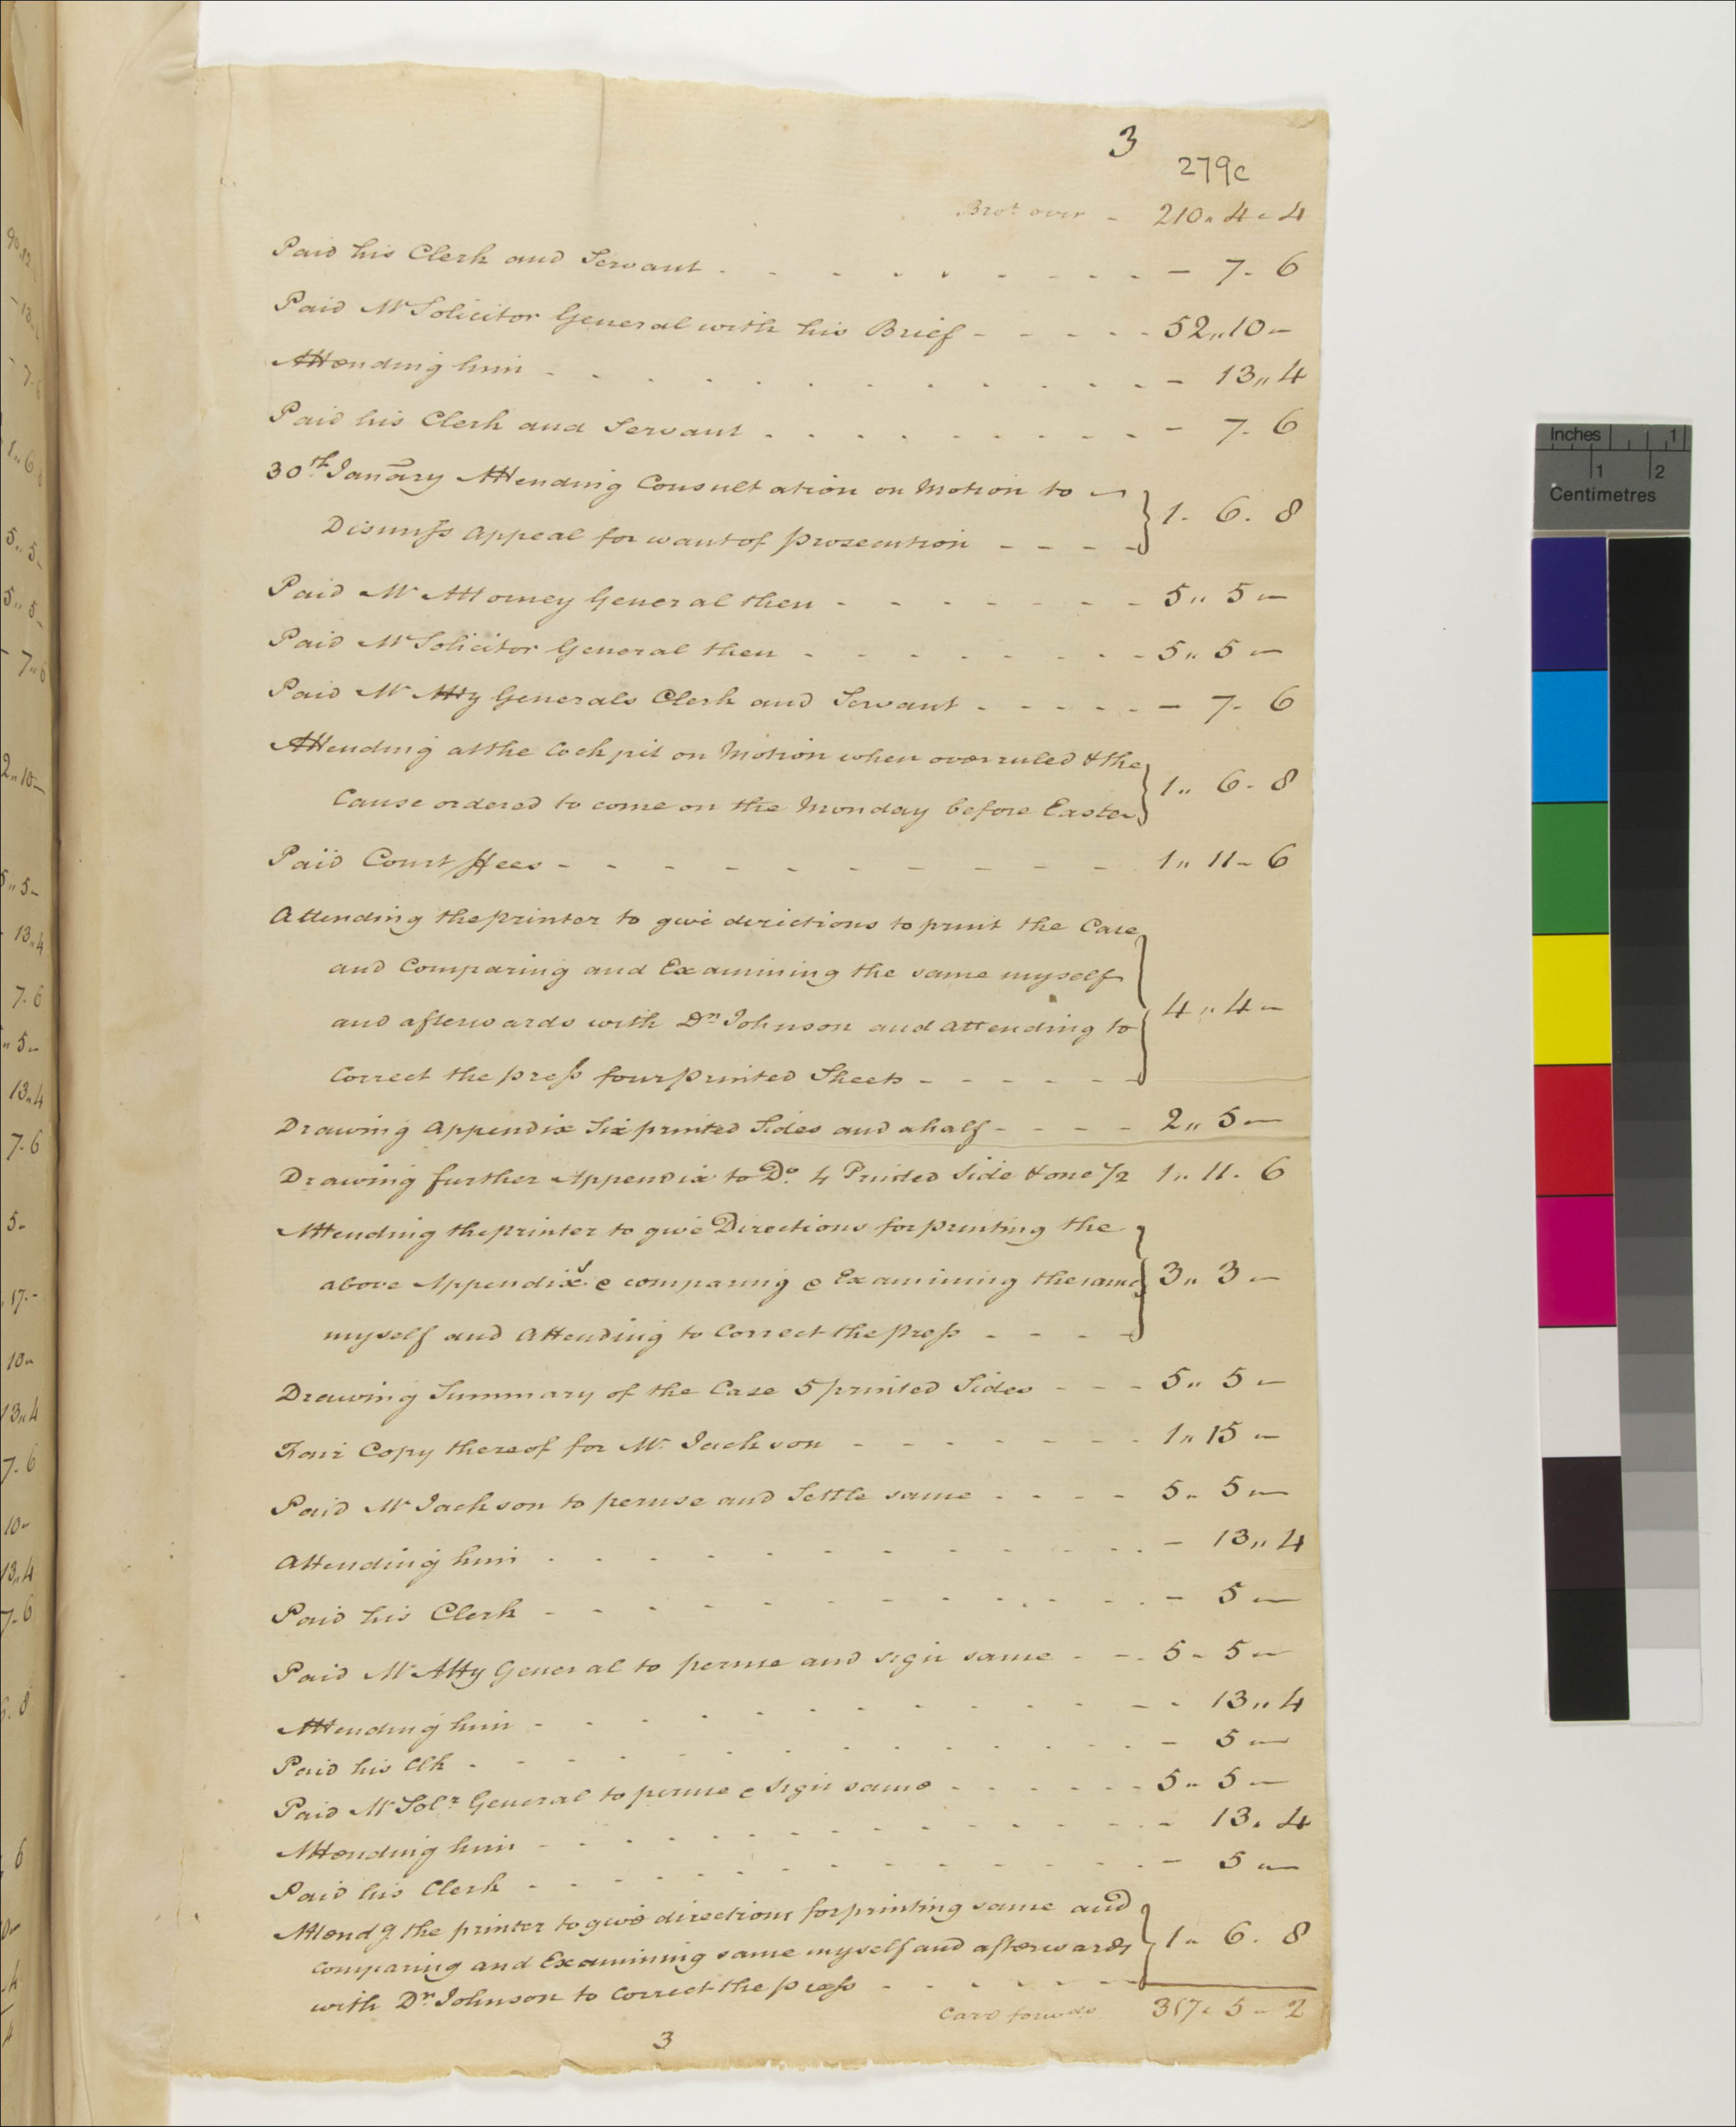 3
279c
Brot over - 210 " 4 " 4
Paid his Clerk and Servant - 7. 6
Paid Mr Solicitor General with his Brief - 52 " 10 -
Attending him - 13 " 4
Paid his Clerk and Servant - 7. 6
30th January Attending Consultation on Motion to
Dismiss Appeal for want of prosecution - 1. 6. 8
Paid Mr Attorney General then - 5 " 5 -
Paid Mr Solicitor General then - 5 " 5 -
Paid Mr Atty Generals Clerk and Servant - 7. 6
Attending at the Cockpit on Motion when overruled & the
Cause ordered to come on the Monday before Easter 1 " 6. 8
Paid Court ffees - 1 " 11 - 6
Attending the printer to give directions to print the Case
and Comparing and Examining the same myself
and afterwards with Dr. Johnson and attending to 4 " 4 -
Correct the press four printed Sheets -
Drawing Appendix Six printed Sides and a half - 2 " 5 -
Drawing further Appendix to Do. 4 Printed Side & one 1/2 1 " 11. 6
Attending the printer to give Directions for printing the
above Appendixs & comparing & Examining the same 3 " 3 -
myself and Attending to Correct the press -
Drawing Summary of the Case 5 printed Sides - 5 " 5 -
Fair Copy thereof for Mr. Jackson - 1 " 15 -
Paid Mr Jackson to peruse and Settle same - 5 " 5 -
Attending him - 13 " 4
Paid his Clerk - 5 -
Paid Mr Atty General to peruse and sign same - 5 - 5 -
Attending him - 13 " 4
Paid his Clk - 5 -
Paid Mr Solr General to peruse & sign same - 5 " 5 -
Attending him - 13. 4
Paid his Clerk - 5 -
Attendg the printer to give directions for printing same and
comparing and Examining same myself and afterwards 1 " 6. 8
with Dr Johnson to Correct the press -
Card forwds 317 " 5 - 2
3